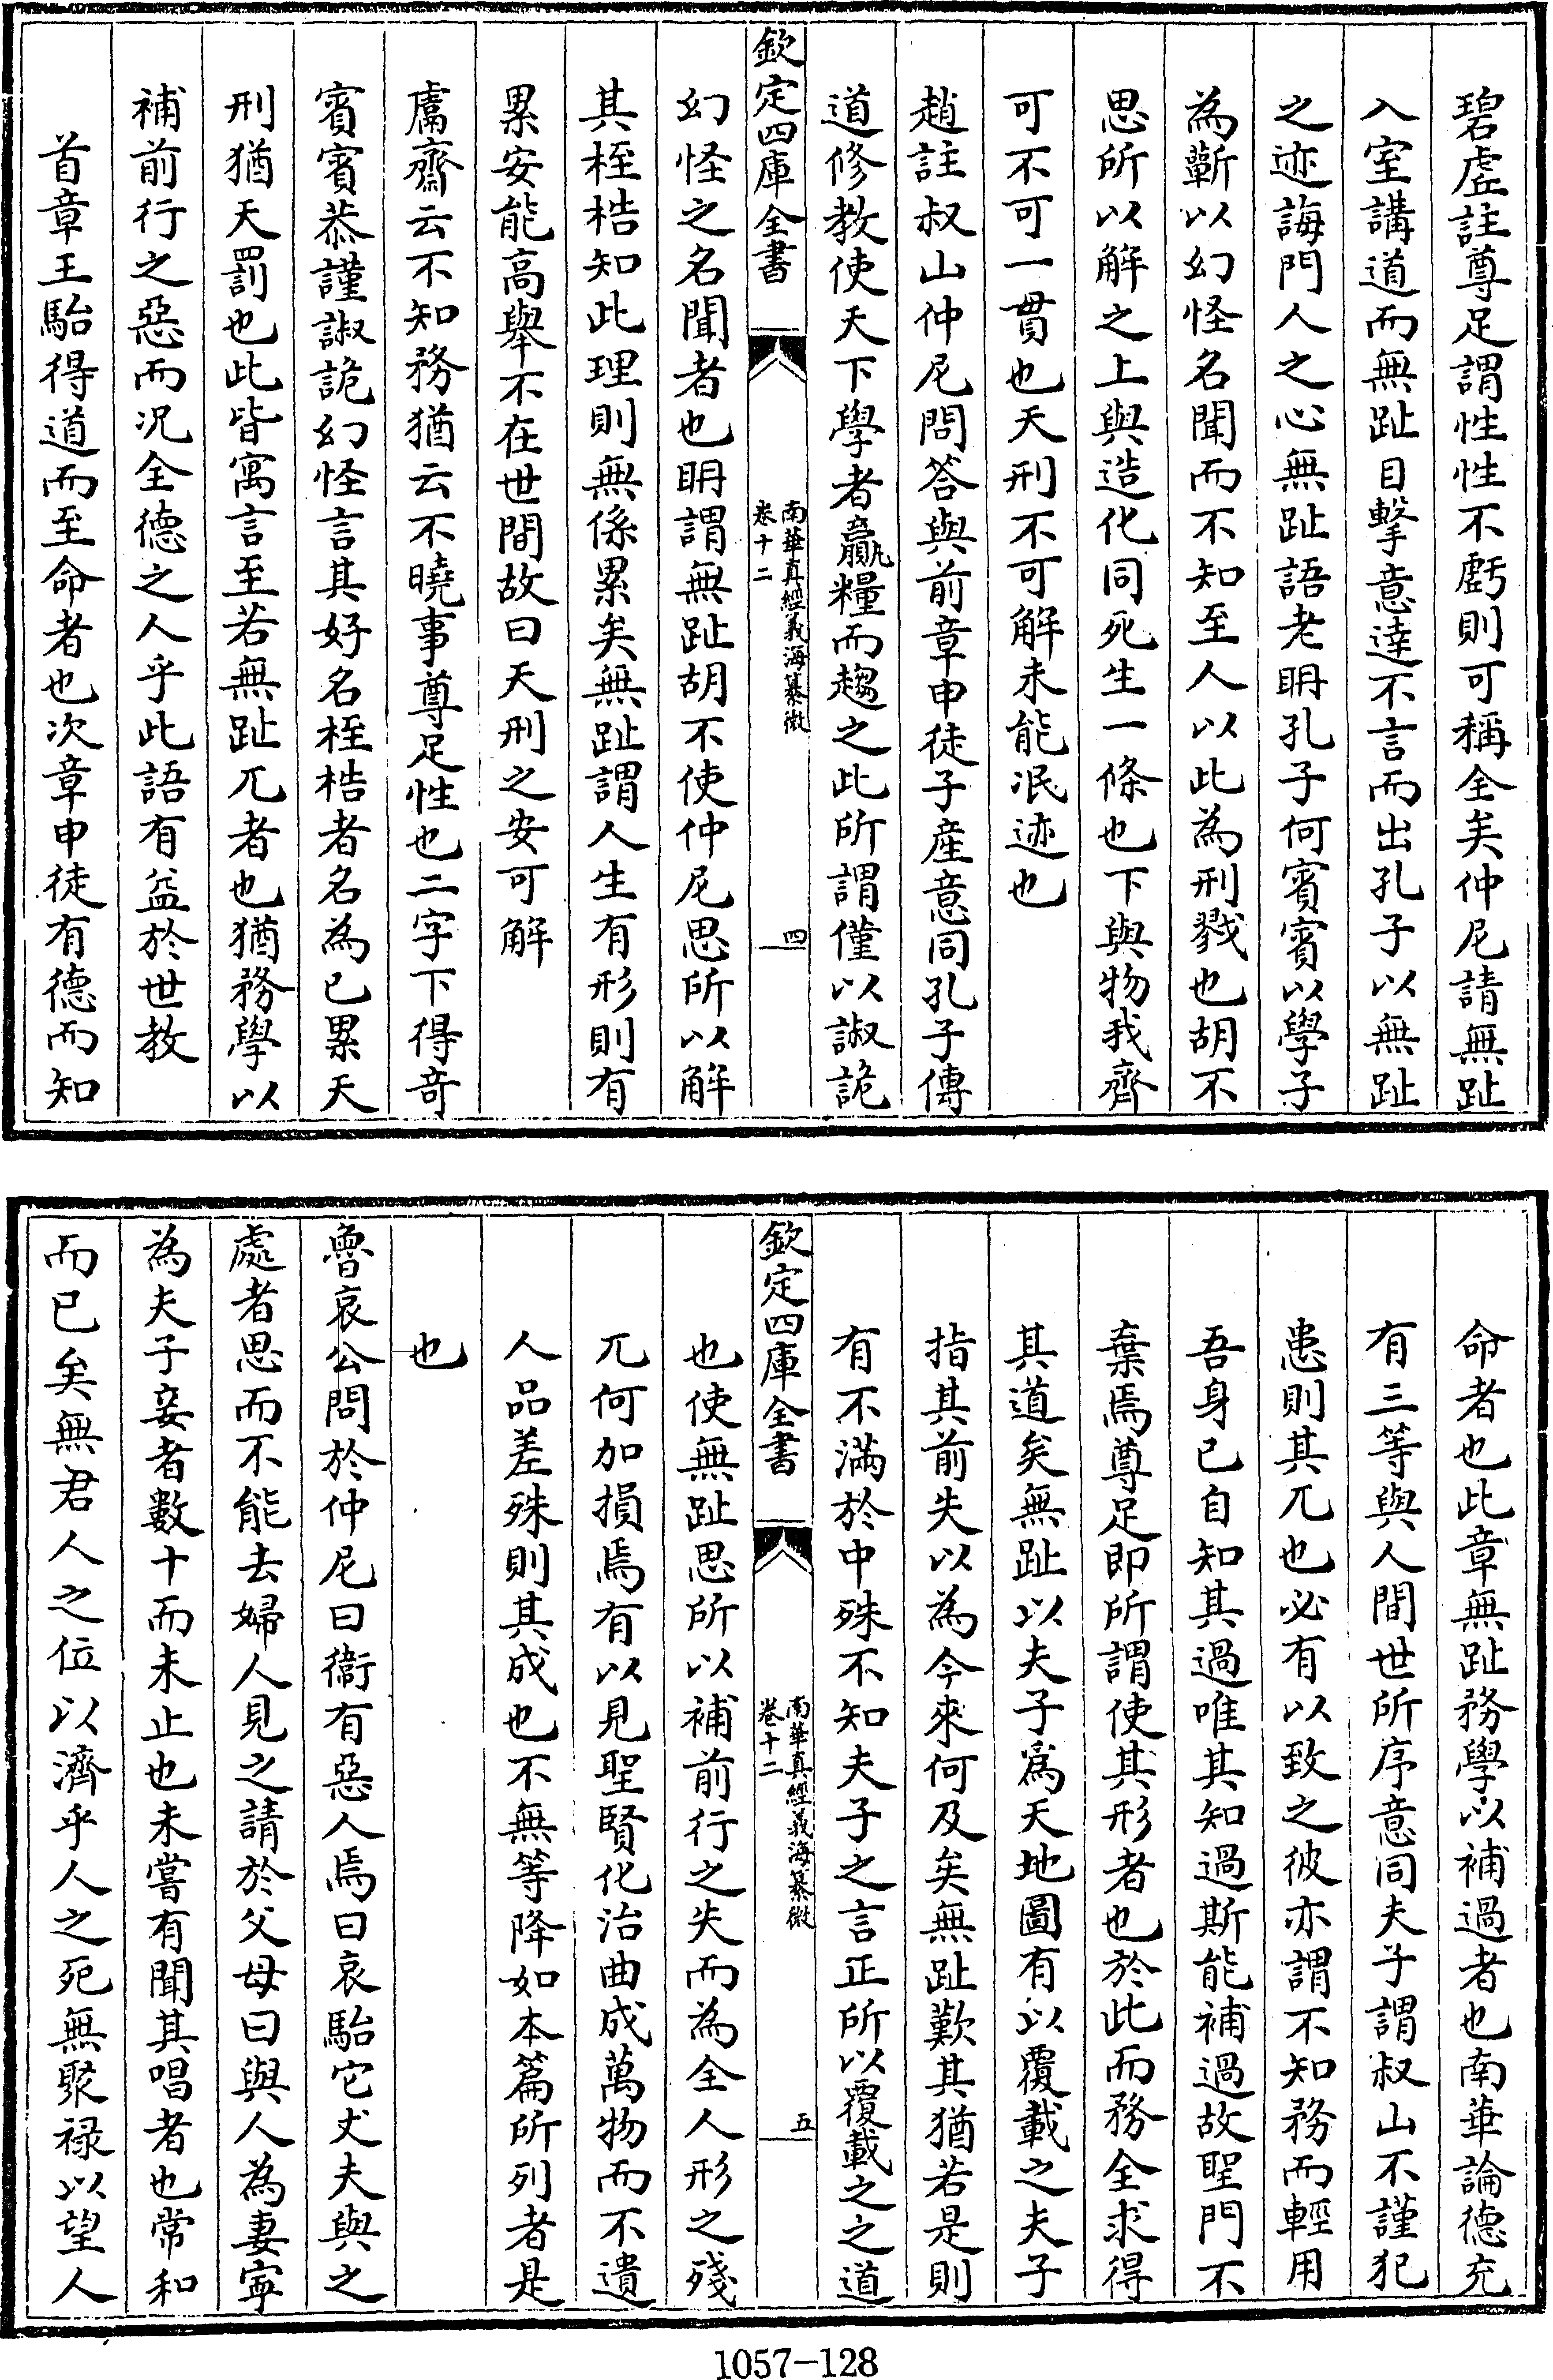 碧虛註尊足謂性性不虧則可稱全矣仲尼請無趾
入室講道而無趾目擊意達不言而出孔子以無趾
之迹誨門人之心無趾語老聃孔子何賓賓以學子
為蘄以幻怪名聞而不知至人以此為刑戮也胡不
思所以解之上與造化同死生一條也下與物我齊
可不可一貫也天刑不可解未能泯迹也
趙註叔山仲尼問答與前章申徒子產意同孔子傳
道修教使天下學者贏糧而趨之此所謂僅以諔詭
欽定四庫全書
南華真經義海纂微
卷十二
四
幻怪之名聞者也聃謂無趾胡不使仲尼思所以解
其桎梏知此理則無係累矣無趾謂人生有形則有
累安能高舉不在世間故曰天刑之安可解
鬳齋云不知務猶云不曉事尊足性也二字下得奇
賓賓恭謹諔詭幻怪言其好名桎梏者名為已累天
刑猶天罰也此皆寓言至若無趾兀者也猶務學以
補前行之惡而况全德之人乎此語有益於世教
首章王駘得道而至命者也次章申徒有德而知
命者也此章無趾務學以補過者也南華論德充
有三等與人間世所序意同夫子謂叔山不謹犯
患則其兀也必有以致之彼亦謂不知務而輕用
吾身已自知其過唯其知過斯能補過故聖門不
棄焉尊足即所謂使其形者也於此而務全求得
其道矣無趾以夫子為天地圖有以覆載之夫子
指其前失以為今來何及矣無趾歎其猶若是則
有不滿於中殊不知夫子之言正所以覆載之之道
欽定四庫全書
南華真經義海纂微
卷十二
五
也使無趾思所以補前行之失而為全人形之殘
兀何加損焉有以見聖賢化治曲成萬物而不遺
人品差殊則其成也不無等降如本篇所列者是
也
魯哀公問於仲尼曰衞有惡人焉曰哀駘它丈夫與之
處者思而不能去婦人見之請於父母曰與人為妻寧
為夫子妾者數十而未止也未嘗有聞其唱者也常和
而已矣無君人之位以濟乎人之死無聚祿以望人
1057-128